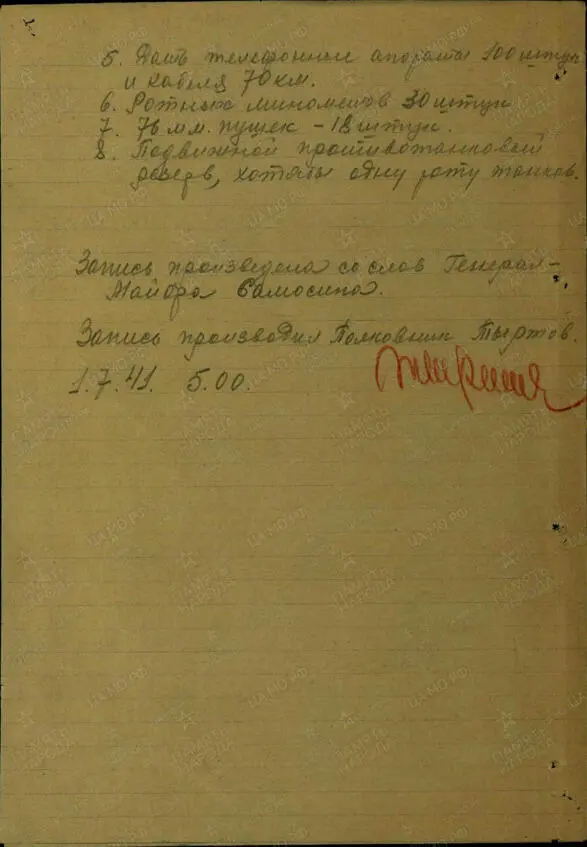 5. Дать телефонных апарата 100 штук
и кабеля 70 км.
6. Ротных минометов 30 штук
7. 76 мм. пушек - 18 штук.
8. Подвижной противотанковый
резерв, хотябы одну роту танков.
Запись произведена со слов Генерал-
Майора Самосина.
Запись производил Полковник Тыртов.
1.7.41. 5.00.